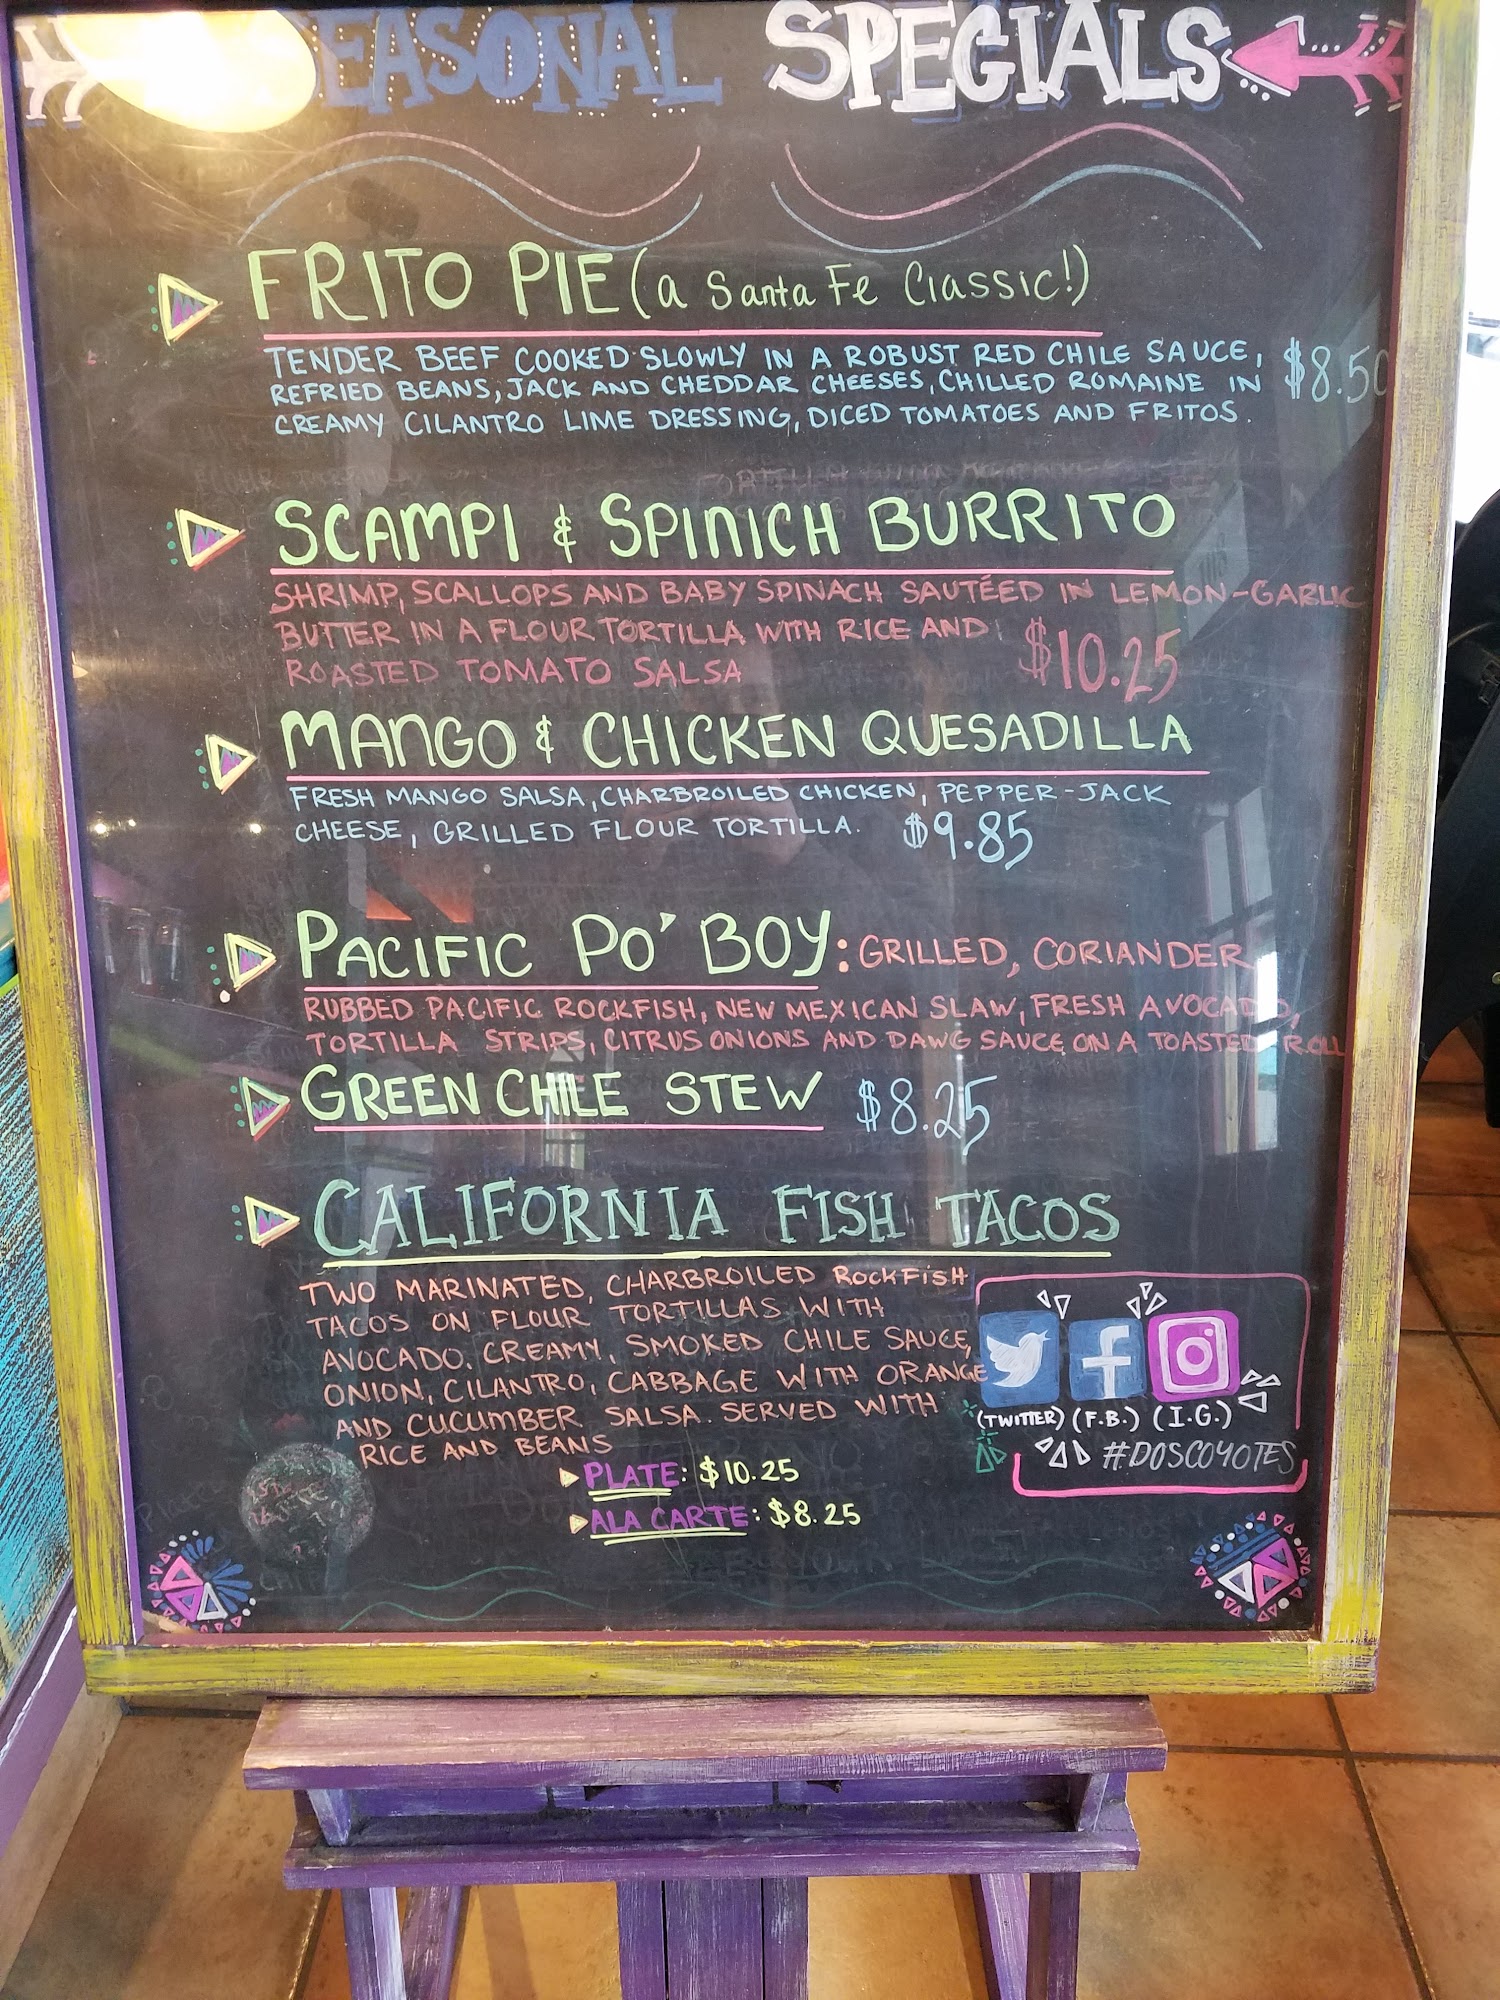 SEASONAL SPECIALS
FRITO PIE (a Santa Fe Classic!)
TENDER BEEF COOKED SLOWLY IN A ROBUST RED CHILE SAUCE,
REFRIED BEANS, JACK AND CHEDDAR CHEESES, CHILLED ROMAINE IN
CREAMY CILANTRO LIME DRESSING, DICED TOMATOES AND FRITOS.
$8.50
SCAMPI & SPINICH BURRITO
SHRIMP, SCALLOPS AND BABY SPINACH SAUTÉED IN LEMON-GARLIC
BUTTER IN A FLOUR TORTILLA WITH RICE AND
ROASTED TOMATO SALSA
$10.25
MANGO & CHICKEN QUESADILLA
FRESH MANGO SALSA, CHARBROILED CHICKEN, PEPPER-JACK
CHEESE, GRILLED FLOUR TORTILLA. $9.85
PACIFIC PO' BOY: GRILLED, CORIANDER
RUBBED PACIFIC ROCKFISH, NEW MEXICAN SLAW, FRESH AVOCADO,
TORTILLA STRIPS, CITRUS ONIONS AND DAWG SAUCE ON A TOASTED ROLL
GREEN CHILE STEW $8.25
CALIFORNIA FISH TACOS
TWO MARINATED, CHARBROILED ROCKFISH
TACOS ON FLOUR TORTILLAS WITH
AVOCADO, CREAMY, SMOKED CHILE SAUCE,
ONION, CILANTRO, CABBAGE WITH ORANGE
AND CUCUMBER SALSA. SERVED WITH
RICE AND BEANS
PLATE: $10.25
ALA CARTE: $8.25
(TWITTER) (F.B.) (I.G.)
#DOSCOYOTES